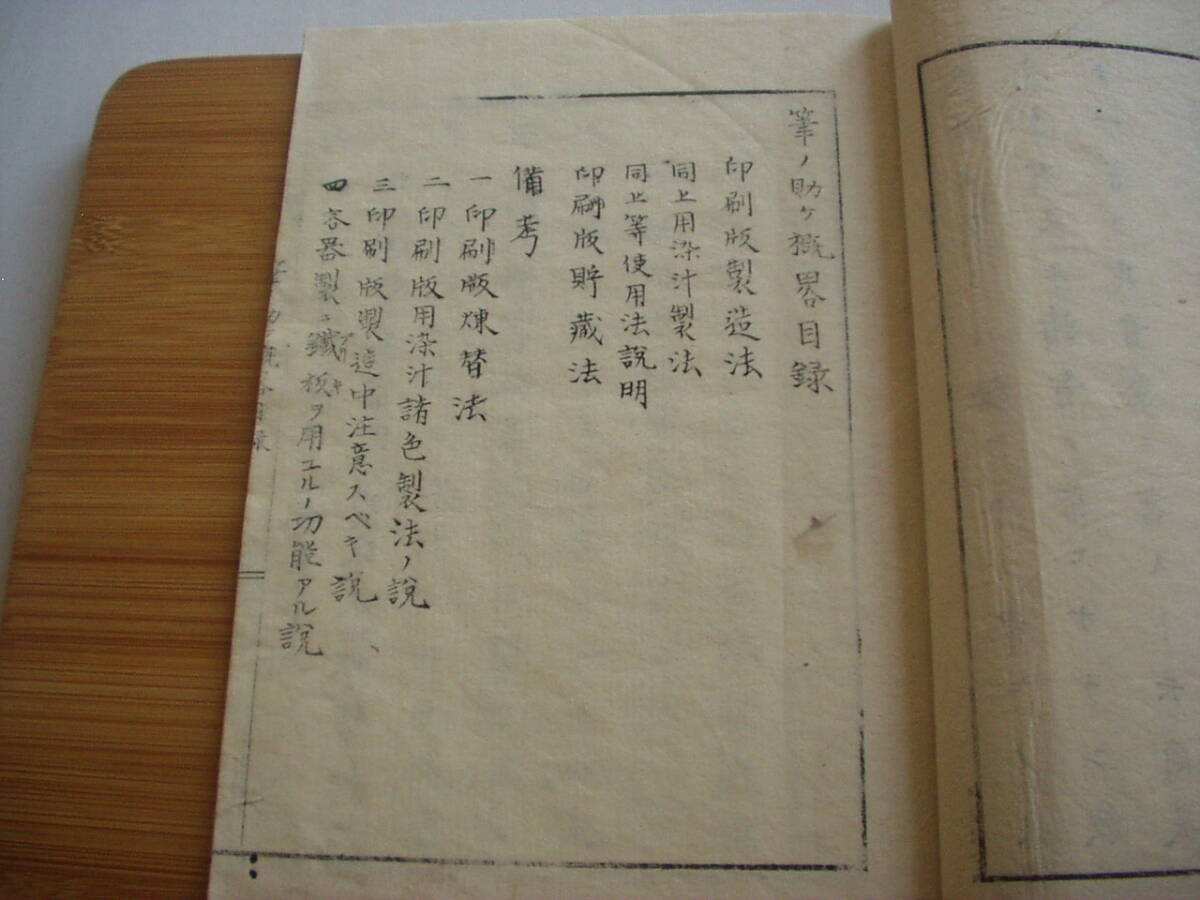 筆ノ助ケ概畧目録
印刷版製造法
同上用染汁製法
同上等使用法説明
印刷版貯藏法
備考
一 印刷版煉替法
二 印刷版用染汁諸色製法ノ説
三 印刷版製造中注意スベキ説
四 容器製ニ鐵板ヲ用ユルノ功能アル説